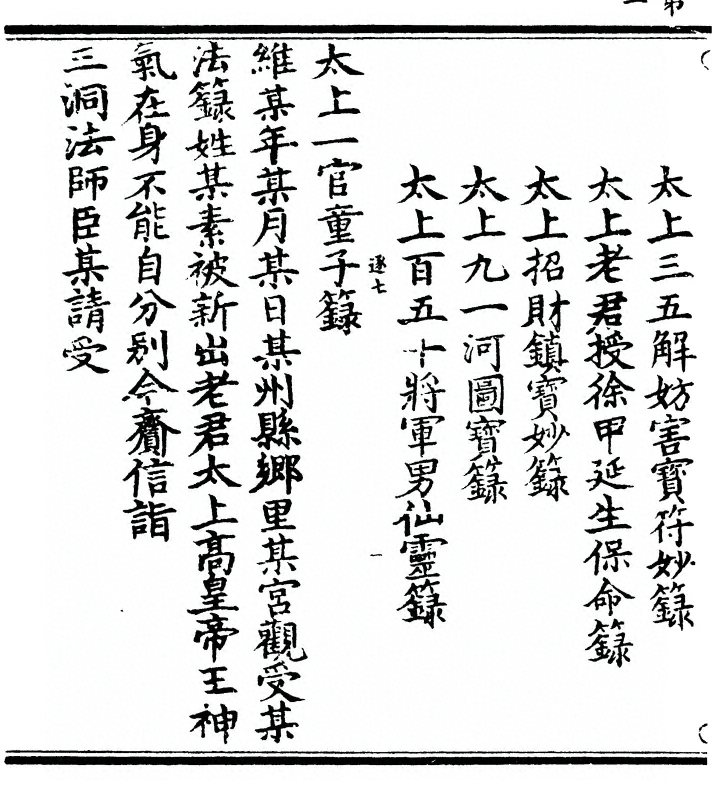 太上三五解妨害寶符妙籙
太上老君授徐甲延生保命籙
太上招財鎮寶妙籙
太上九一河圖寶籙
太上百五十將軍男仙靈籙
逐七
太上一官童子籙
維某年某月某日某州縣鄉里某宮觀受某
法籙姓某素被新出老君太上高皇帝王神
氣在身不能自分别今齎信詣
三洞法師臣某請受